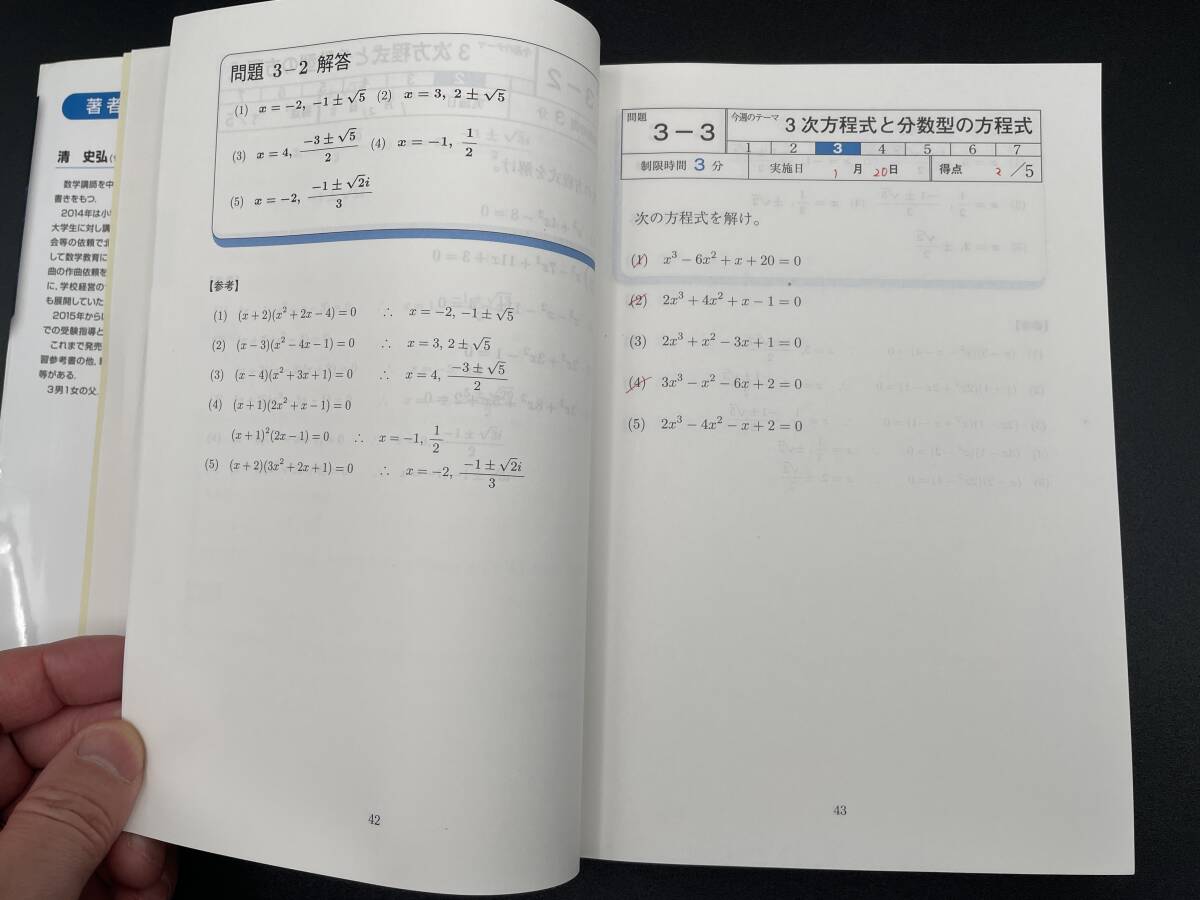 著者
清 史弘
数学講師を中
書きをもつ.
2014年は小
大学生に対し講
会等の依頼で北
して数学教育に
曲の作曲依頼を
に, 学校経営の
も展開していた
2015年から
での受験指導と
これまで発売
習参考書の他,
等がある.
3男1女の父.
問題 3-2 解答
(1) x=-2, -1±√5 (2) x=3, 2±√5
(3) x=4, (-3±√5)/2 (4) x=-1, 1/2
(5) x=-2, (-1±√2i)/3
【参考】
(1) (x+2)(x²+2x-4)=0 ∴ x=-2, -1±√5
(2) (x-3)(x²-4x-1)=0 ∴ x=3, 2±√5
(3) (x-4)(x²+3x+1)=0 ∴ x=4, (-3±√5)/2
(4) (x+1)(2x²+x-1)=0
(x+1)²(2x-1)=0 ∴ x=-1, 1/2
(5) (x+2)(3x²+2x+1)=0 ∴ x=-2, (-1±√2i)/3
42
問題 3-3 今週のテーマ 3次方程式と分数型の方程式
1 2 3 4 5 6 7
制限時間 3 分 実施日 1月20日 得点 2/5
次の方程式を解け。
(1) x³-6x²+x+20=0
(2) 2x³+4x²+x-1=0
(3) 2x³+x²-3x+1=0
(4) 3x³-x²-6x+2=0
(5) 2x³-4x²-x+2=0
43